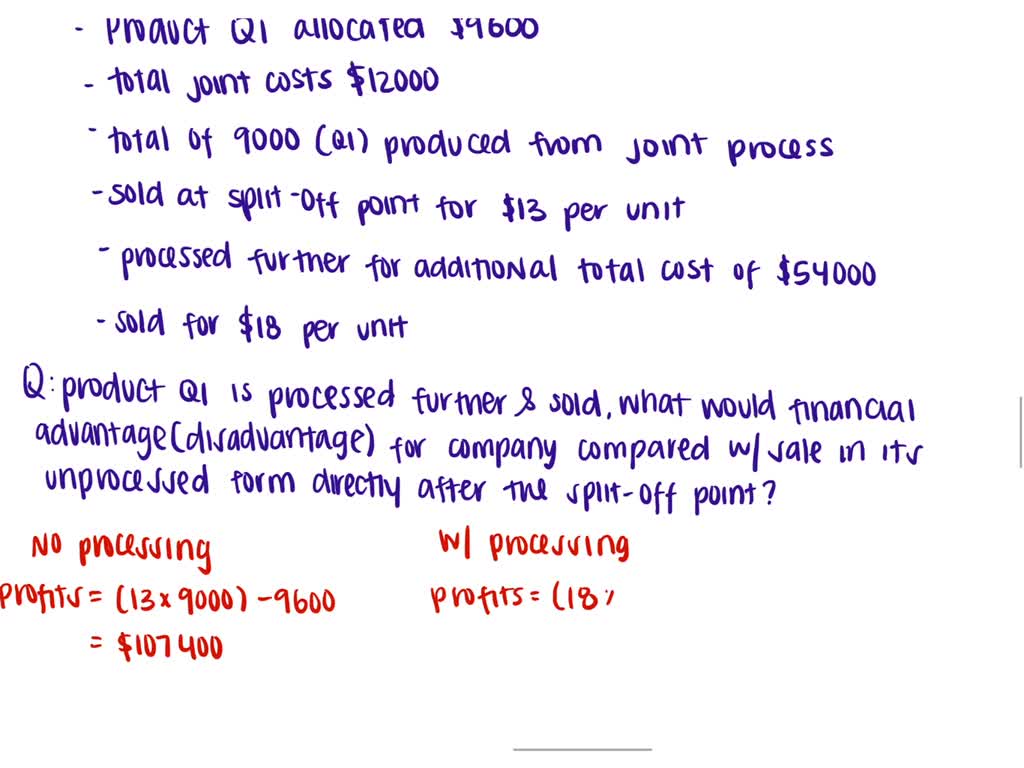 - Product Q1 allocated $9600
- total joint costs $12000
- total of 9000 (Q1) produced from joint process
- sold at split-off point for $13 per unit
- processed further for additional total cost of $54000
- sold for $18 per unit
Q: product Q1 is processed further & sold, what would financial
advantage (disadvantage) for company compared w/ sale in its
unprocessed form directly after the split-off point?
No processing
profits = (13 x 9000) - 9600
= $107400
w/ processing
profits = (18